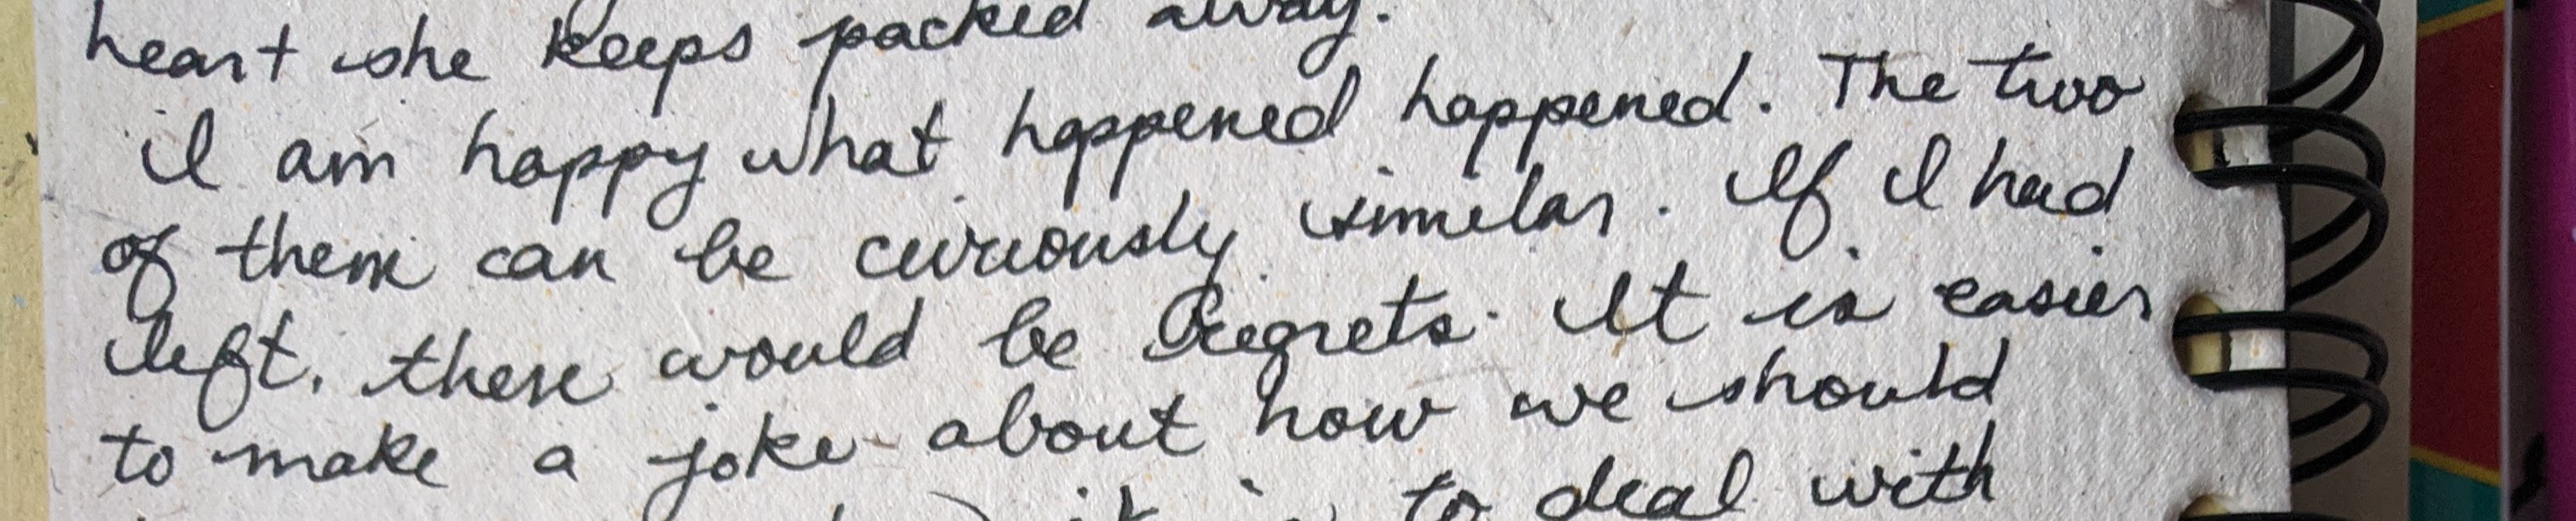 heart she keeps packed away.
I am happy what happened happened. The two
of them can be curiously similar. If I had
left, there would be Regrets. It is easier
to make a joke about how we should
it is to deal with